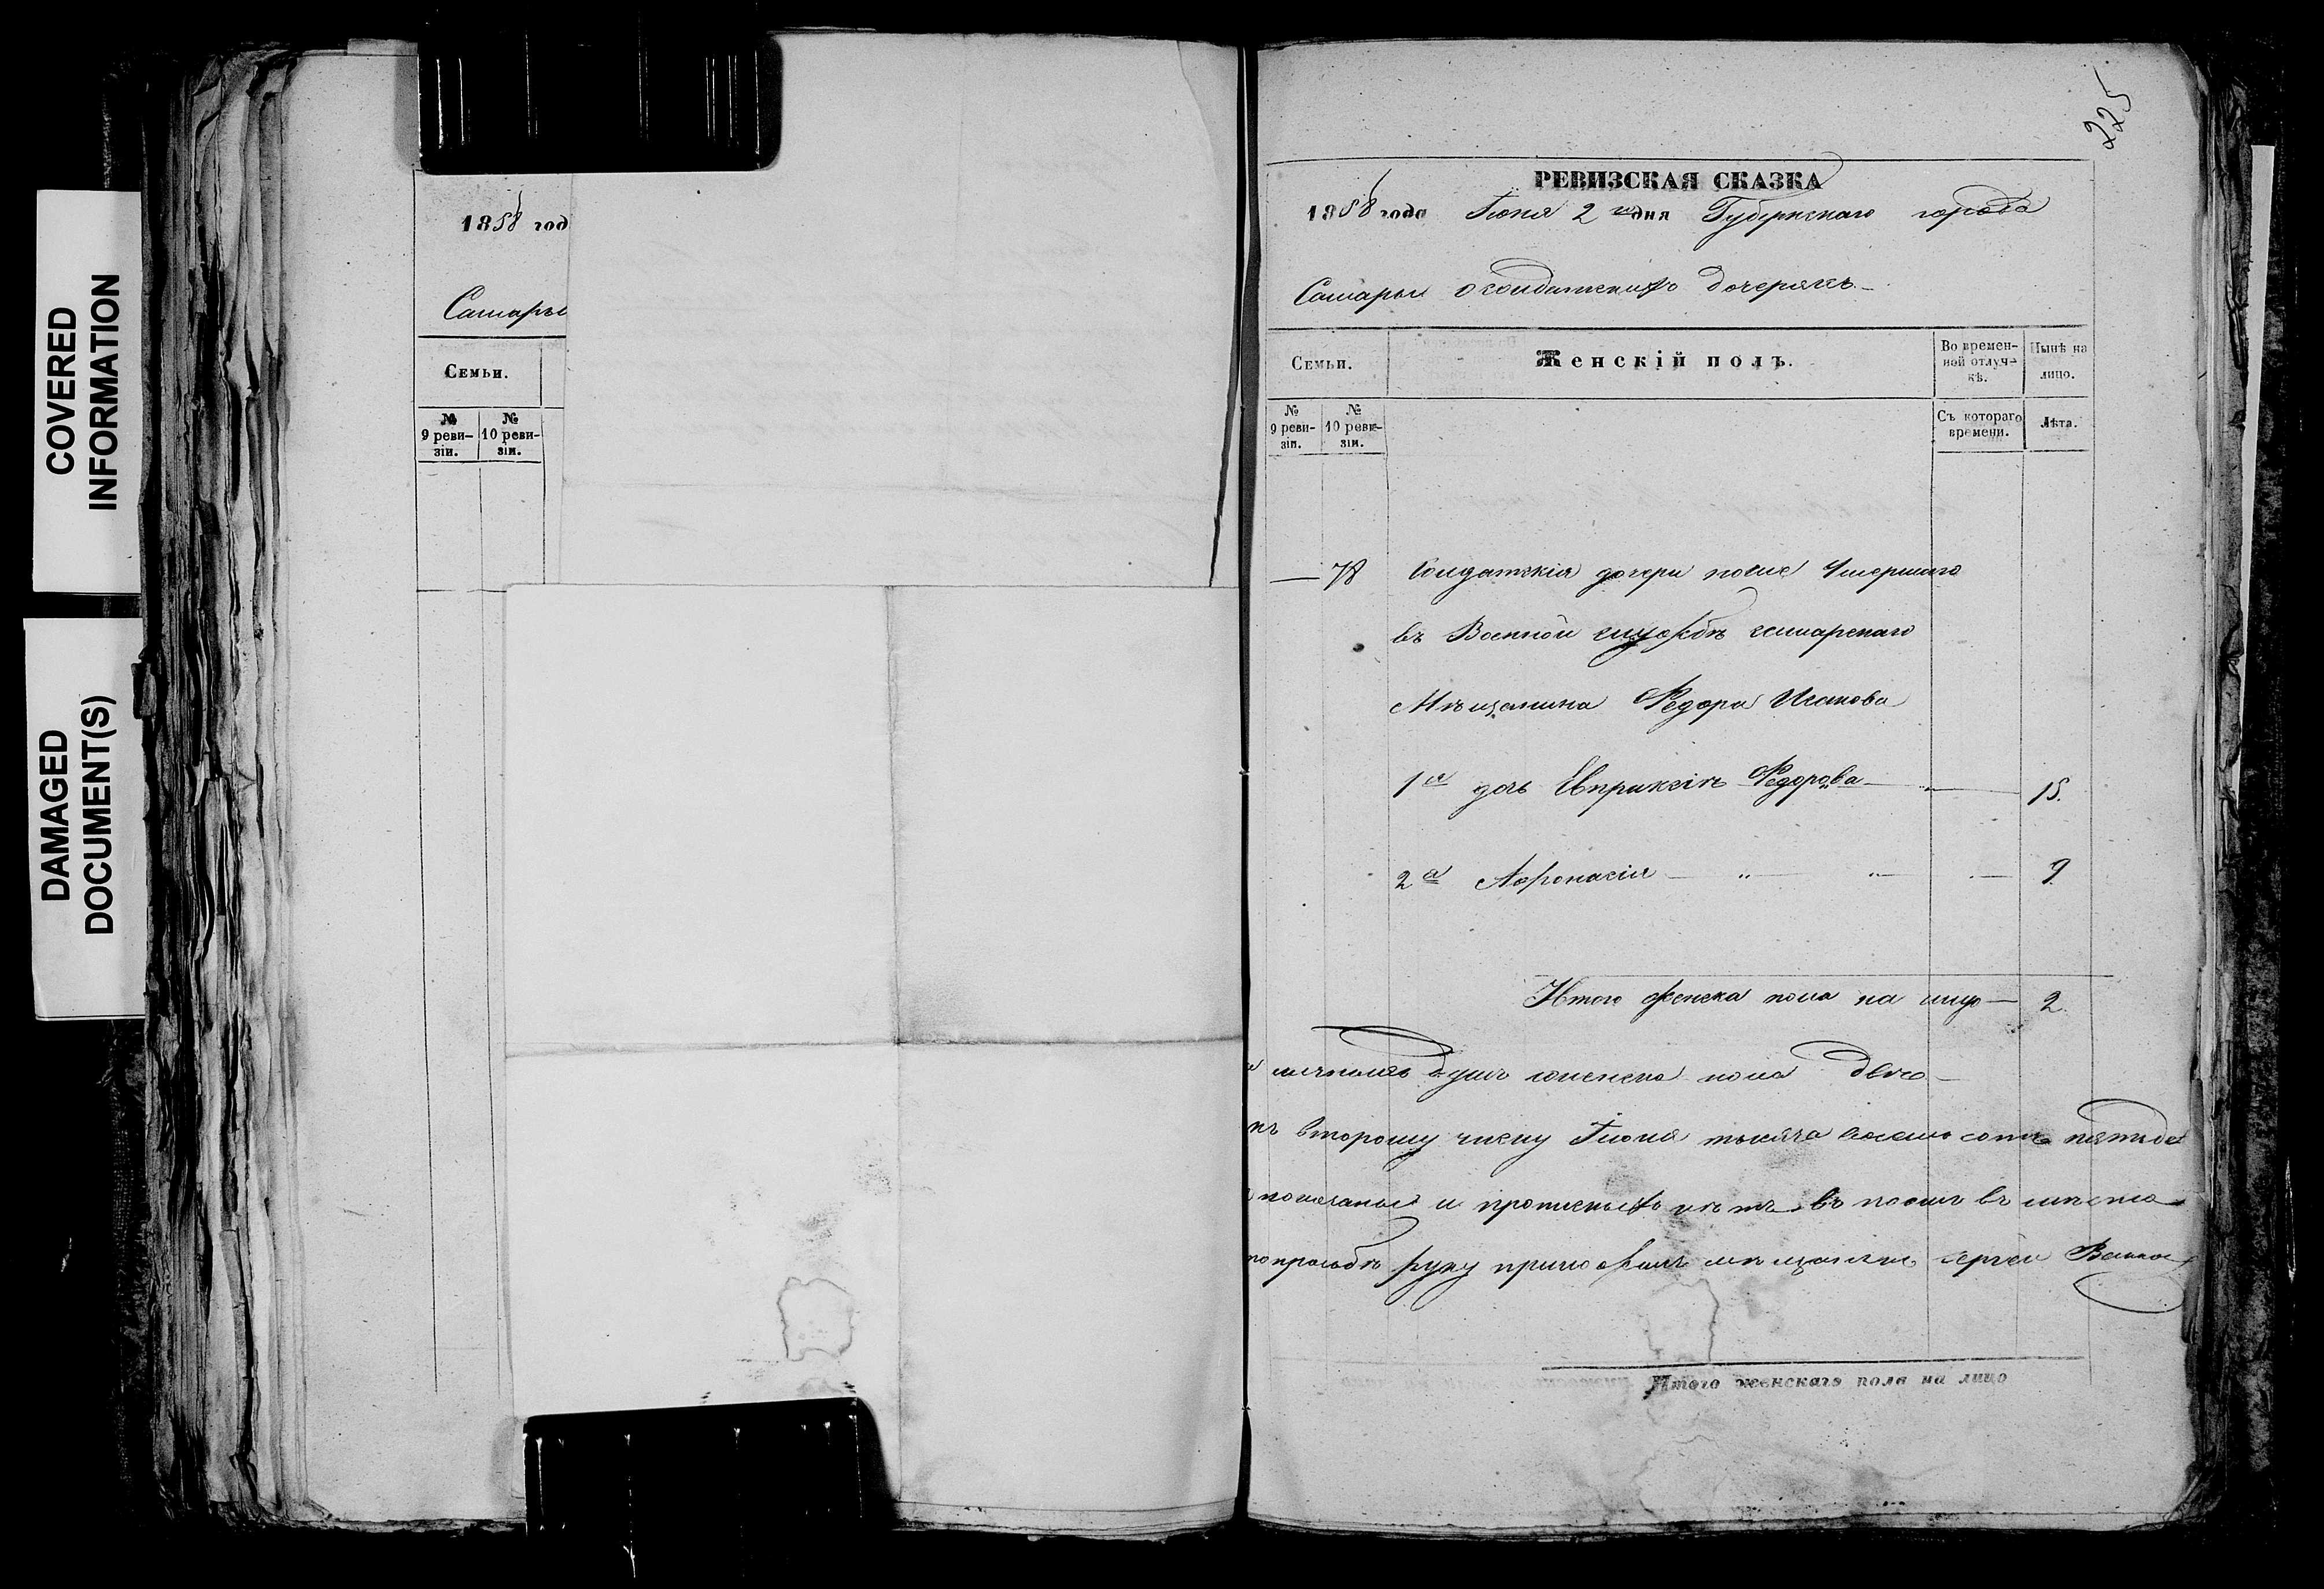 COVERED
INFORMATION
DAMAGED
DOCUMENT(S)
1858 год
Самары
Семьи.
№ 9 реви-зіи.
№ 10 реви-зіи.
225
РЕВИЗСКАЯ СКАЗКА
1858 года Іюня 2 го дня Губернскаго города
Самары о солдатскихъ дочеряхъ
Семьи.
Женскій полъ.
Во времен-ной отлуч-кѣ.
Нынѣ на лицо.
№ 9 реви-зіи.
№ 10 реви-зіи.
Съ котораго времени.
Лѣта.
— 78 Солдатскія дочери после Умершаго
въ Военной службѣ самарскаго
Мѣщанина Федора Исакова
1я дочь Евпраксія Федорова — „ — 15.
2я Афонасія — „ — „ — 9.
Итого женска пола на лицо — 2.
душъ женска пола двѣ
второму числу Іюня тысяча восемь сотъ пятьде
и прописныхъ нѣтъ въ томъ въ мѣсто
попрозьбѣ руку приложилъ мѣщанинъ сергей
Итого женскаго пола на лицо